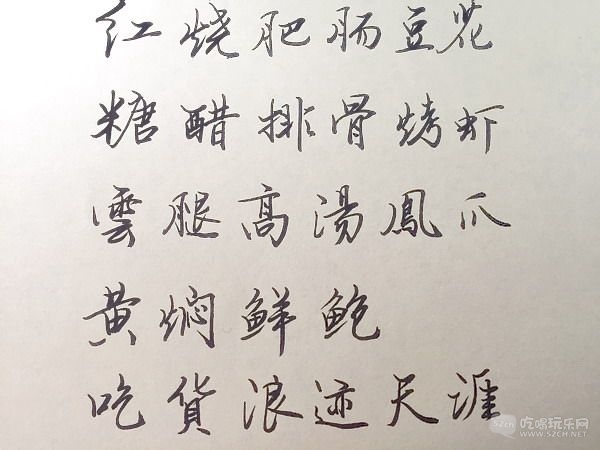 红烧肥肠豆花
糖醋排骨烤虾
雲腿高湯鳳爪
黄焖鲜鲍
吃貨浪迹天涯
SZCN 吃喝玩乐网
WWW.SZCH.NET